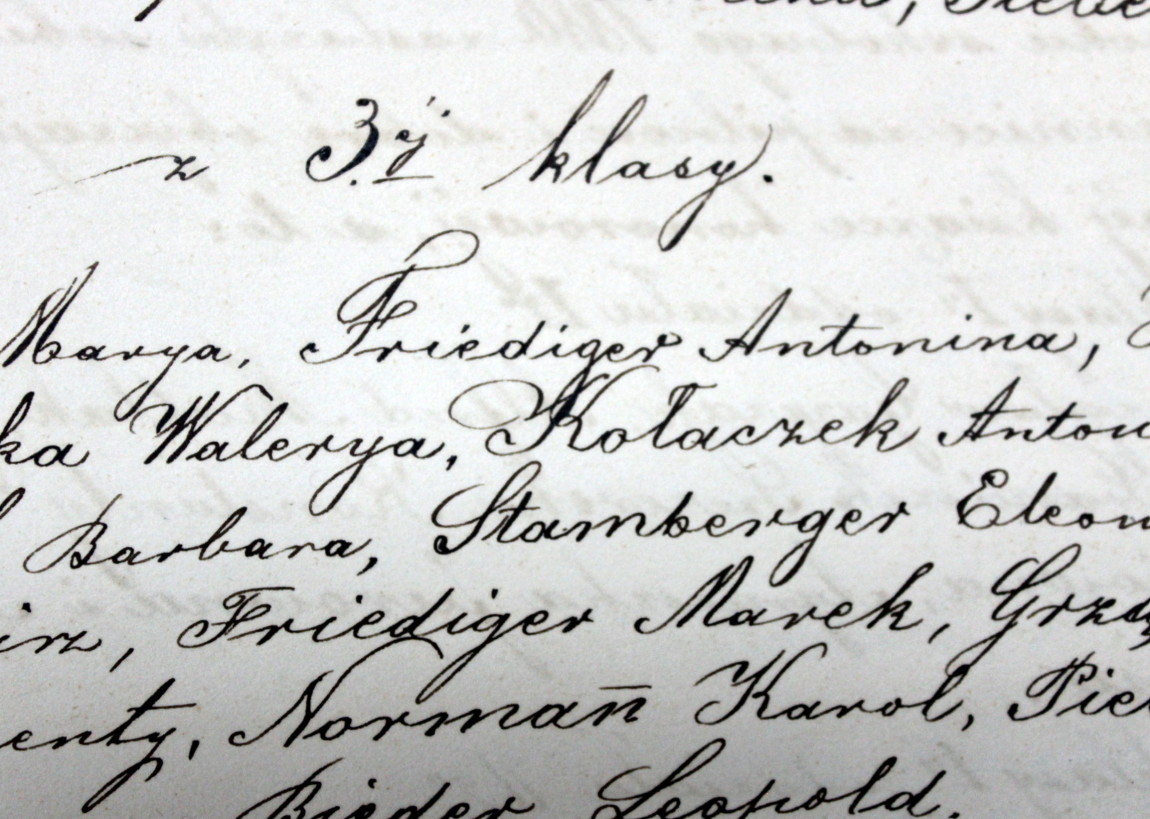 z 3ej klasy.
Marya, Friediger Antonina,
ka Walerya, Kołaczek Anton
Barbara, Stamberger Eleon
irz, Friediger Marek, Grzą
enty, Normañ Karol, Pie
Bieder Leopold,